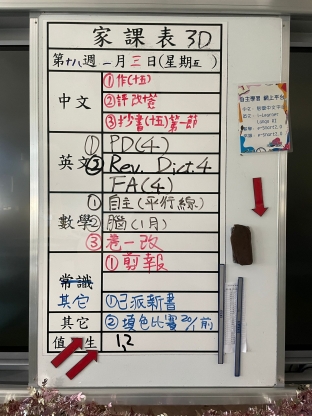 家課表 3D
第十八週 一月三日(星期五)
中文 ①作(十五)
②評改卷
③抄書(十五)第一節
英文 ① PD(4)
② Rev. Dict. 4
FA(4)
數學 ①自主(平行線)
②腦(1月)
③卷一改
常識 ①剪報
其它 ①已派新書
其它 ②填色比賽20/1前
值 生 1,2
自主學習 網上平台